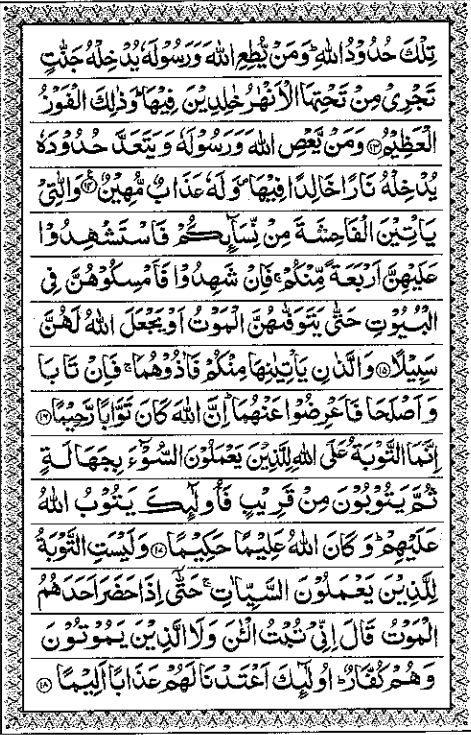 تِلْكَ حُدُوْدُ اللّٰهِ ؕ وَمَنْ يُّطِعِ اللّٰهَ وَرَسُوْلَهٗ يُدْخِلْهُ جَنّٰتٍ
تَجْرِيْ مِنْ تَحْتِهَا الْاَنْهٰرُ خٰلِدِيْنَ فِيْهَا ؕ وَذٰلِكَ الْفَوْزُ
الْعَظِيْمُ ﴿۱۳﴾ وَمَنْ يَّعْصِ اللّٰهَ وَرَسُوْلَهٗ وَيَتَعَدَّ حُدُوْدَهٗ
يُدْخِلْهُ نَارًا خَالِدًا فِيْهَا ۪ وَلَهٗ عَذَابٌ مُّهِيْنٌ ﴿۱۴﴾ وَالّٰتِيْ
يَاْتِيْنَ الْفَاحِشَةَ مِنْ نِّسَآئِكُمْ فَاسْتَشْهِدُوْا
عَلَيْهِنَّ اَرْبَعَةً مِّنْكُمْ ۚ فَاِنْ شَهِدُوْا فَاَمْسِكُوْهُنَّ فِي
الْبُيُوْتِ حَتّٰى يَتَوَفّٰىهُنَّ الْمَوْتُ اَوْ يَجْعَلَ اللّٰهُ لَهُنَّ
سَبِيْلًا ﴿۱۵﴾ وَالَّذٰنِ يَاْتِيٰنِهَا مِنْكُمْ فَاٰذُوْهُمَا ۚ فَاِنْ تَابَا
وَاَصْلَحَا فَاَعْرِضُوْا عَنْهُمَا ؕ اِنَّ اللّٰهَ كَانَ تَوَّابًا رَّحِيْمًا ﴿۱۶﴾
اِنَّمَا التَّوْبَةُ عَلَى اللّٰهِ لِلَّذِيْنَ يَعْمَلُوْنَ السُّوْٓءَ بِجَهَالَةٍ
ثُمَّ يَتُوْبُوْنَ مِنْ قَرِيْبٍ فَاُولٰٓئِكَ يَتُوْبُ اللّٰهُ
عَلَيْهِمْ ؕ وَكَانَ اللّٰهُ عَلِيْمًا حَكِيْمًا ﴿۱۷﴾ وَلَيْسَتِ التَّوْبَةُ
لِلَّذِيْنَ يَعْمَلُوْنَ السَّيِّاٰتِ ۚ حَتّٰۤى اِذَا حَضَرَ اَحَدَهُمُ
الْمَوْتُ قَالَ اِنِّيْ تُبْتُ الْـٰٔنَ وَلَا الَّذِيْنَ يَمُوْتُوْنَ
وَهُمْ كُفَّارٌ ؕ اُولٰٓئِكَ اَعْتَدْنَا لَهُمْ عَذَابًا اَلِيْمًا ﴿۱۸﴾